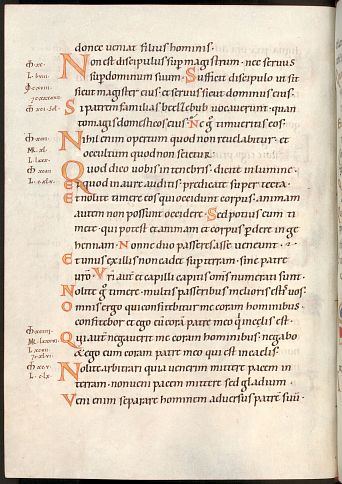 donec veniat filius hominis.
Non est discipulus sup magistrum. nec seruus
sup dominum suum. Sufficit discipulo ut sit
sicut magister eius. et seruus sicut dominus eius.
Si patrem familias beelzebub uocauerunt. quan
to magis domesticos eius. Ne g timueritis eos.
Nihil enim opertum quod non reuelabitur. et
occultum quod non scietur.
Quod dico uobis in tenebris. dicite in lumine.
Et quod in aure auditis. predicate super tecta.
Et nolite timere eos qui occidunt corpus. animam
autem non possunt occidere. Sed potius eum ti
mete. qui potest et animam et corpus pdere in ge
hennam. Nonne duo passeres asse ueneunt.
Et unus ex illis non cadet sup terram. sine patre
uro. Vri aut et capilli capitis oms numerati sunt.
Nolite g timere. multis passeribus meliores estis uos.
Omnis ergo qui confitebitur me coram hominibus.
confitebor et ego eu cora patre meo q in celis est.
Qui aut negauerit me coram hominibus. negabo
& ego eum coram patre meo qui est in caelis.
Nolite arbitrari quia uenerim mittere pacem in
terram. non ueni pacem mittere sed gladium.
Veni enim separare hominem aduersus patre suu.